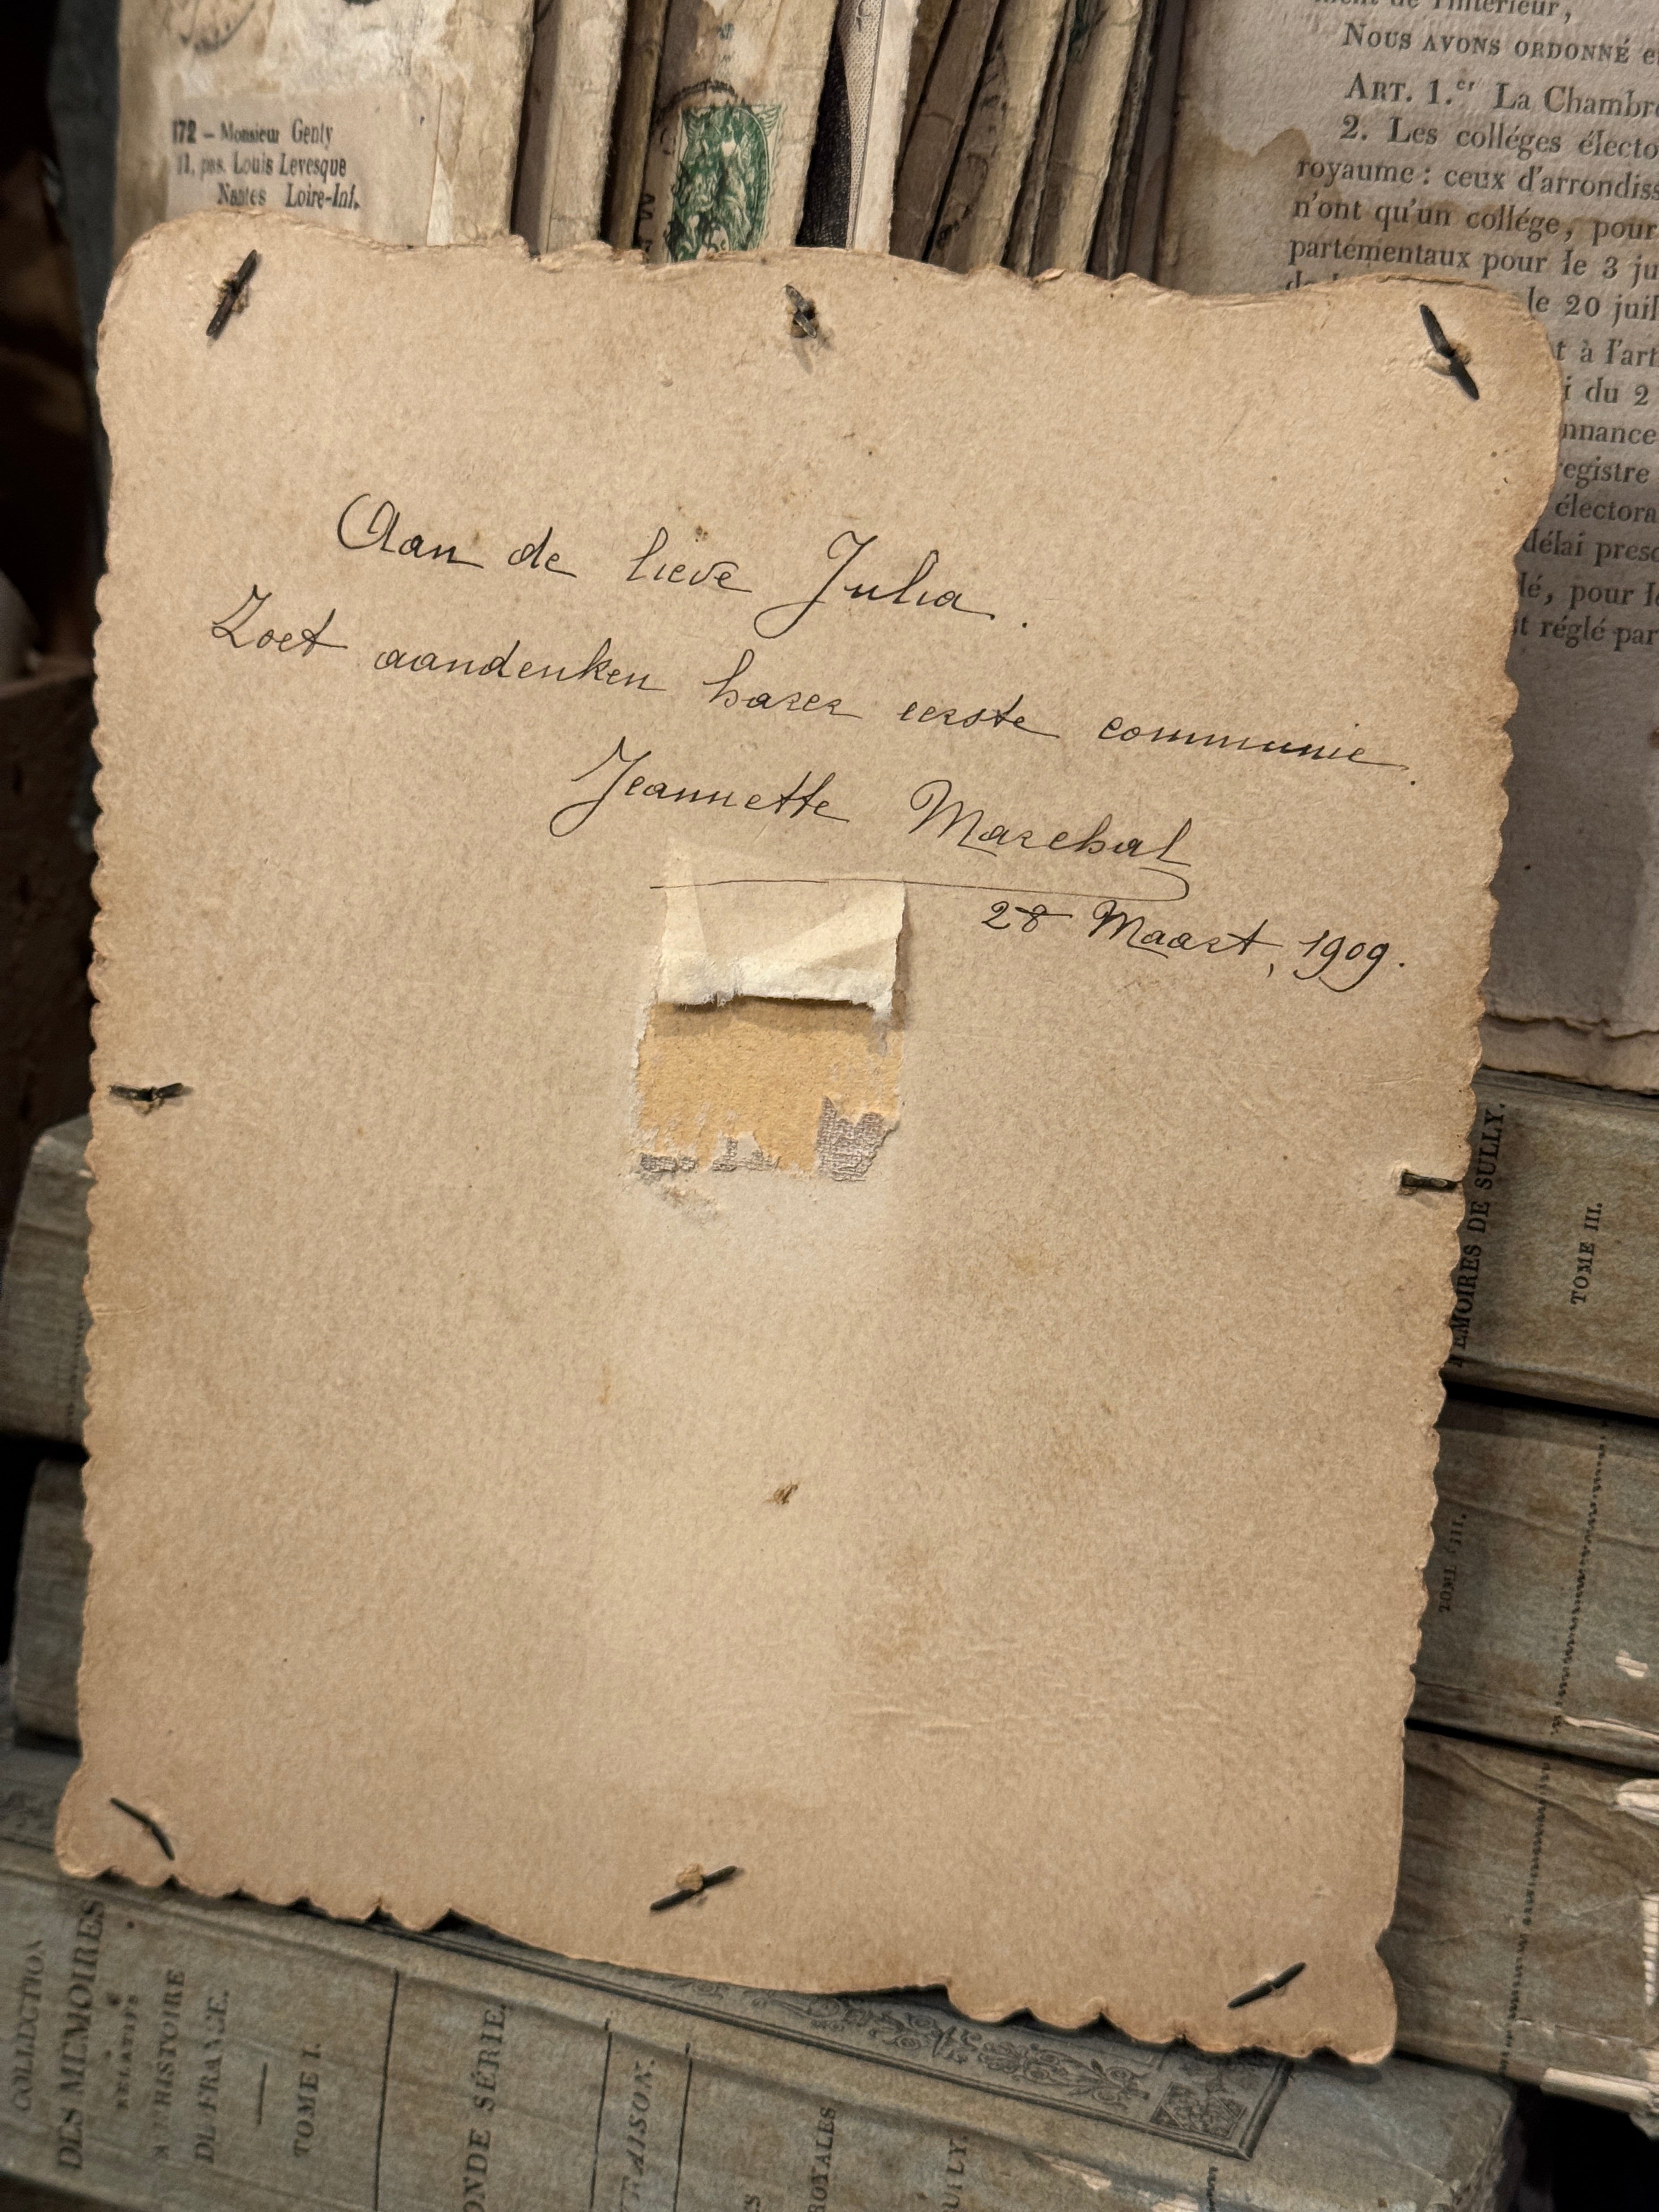 172 – Monsieur Genty
11, pas. Louis Levesque
Nantes Loire-Inf.
NOUS AVONS ORDONNÉ
ART. 1.er La Chambre
2. Les colléges électo
royaume : ceux d'arrondiss
n'ont qu'un collége, pour
partementaux pour le 3 ju
le 20 juil
t à l'art
i du 2
nnance
registre
électora
délai presc
lé, pour le
t réglé par
Aan de lieve Julia.
Zoet aandenken harer eerste communie.
Jeannette Marchal
28 Maart, 1909.
MÉMOIRES DE SULLY.
TOME III.
COLLECTION
DES MÉMOIRES
RELATIFS
A L'HISTOIRE
DE FRANCE.
TOME I.
ONDE SÉRIE.
RAISON.
ROYALES